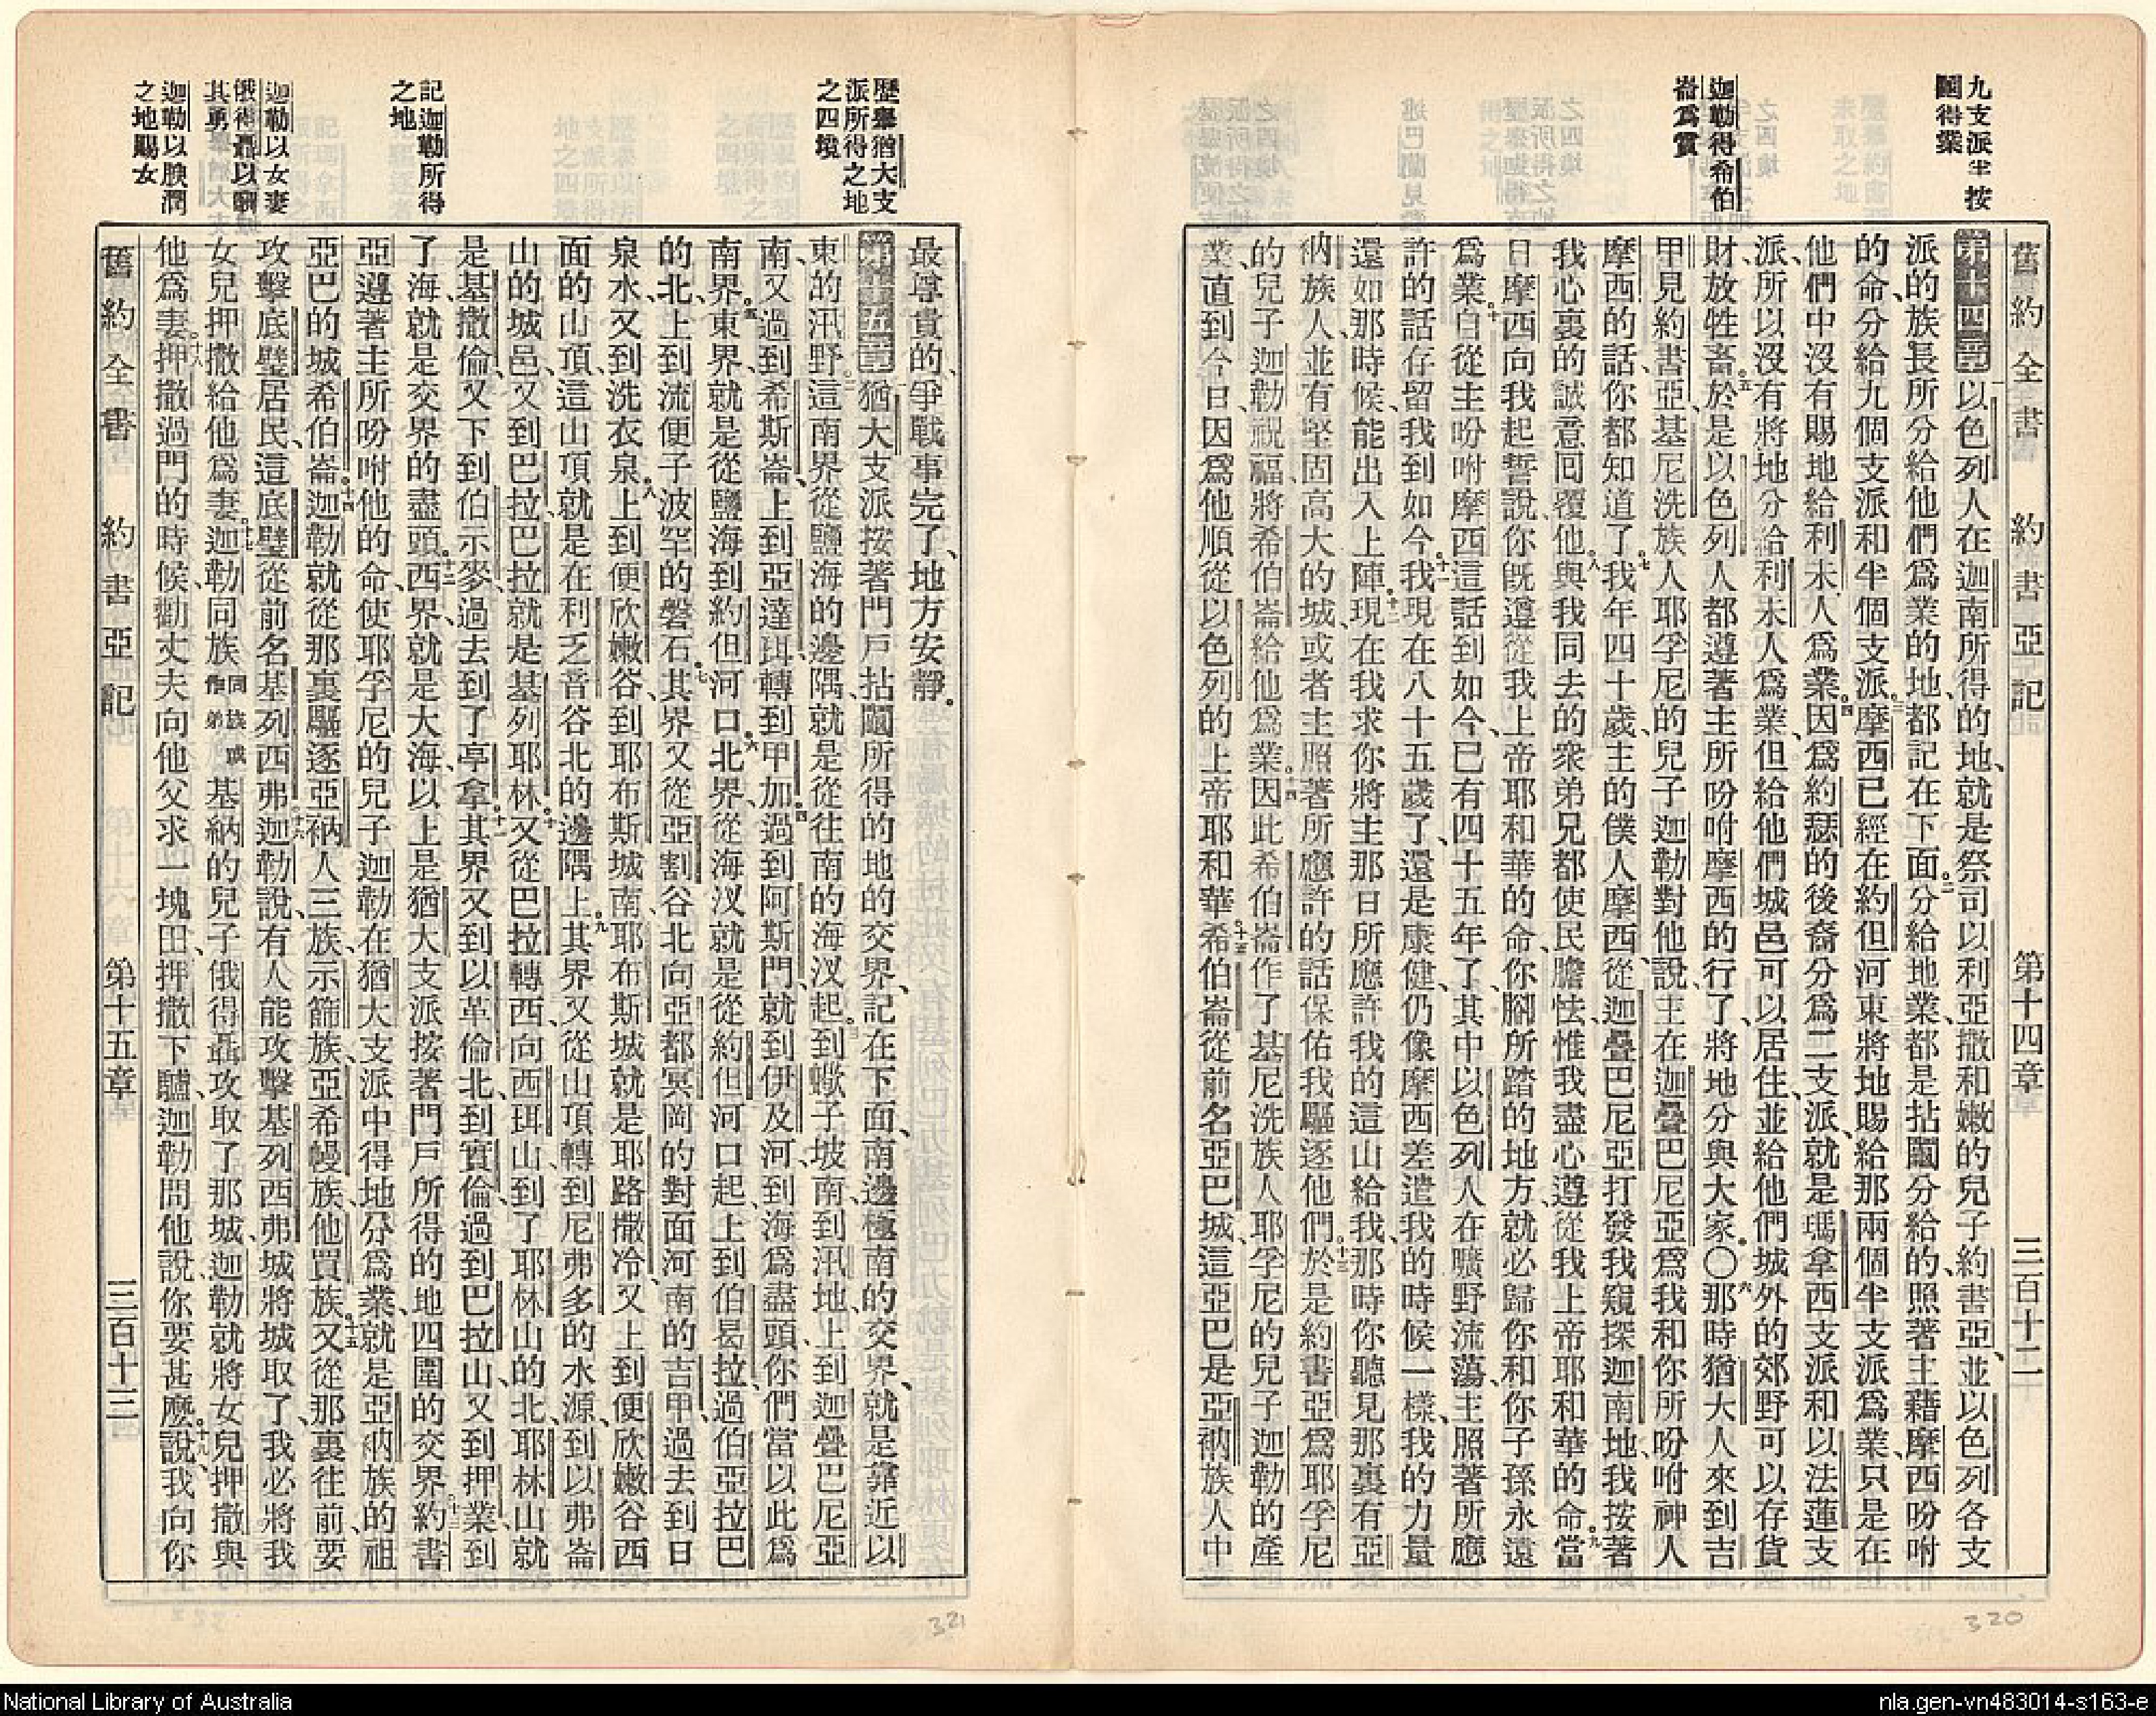 九支派半按
鬮得業
迦勒得希伯
崙爲業
舊約全書 約書亞記 第十四章 三百十二
第十四章 一以色列人在迦南所得的地、就是祭司以利亞撒和嫩的兒子約書亞、並以色列各支
派的族長所分給他們爲業的地、都記在下面。二分給地業、都是拈鬮分給的、照著主藉摩西吩咐
的命、分給九個支派和半個支派。三摩西已經在約但河東將地賜給那兩個半支派爲業、只是在
他們中沒有賜地給利未人爲業。四因爲約瑟的後裔分爲二支派、就是瑪拿西支派和以法蓮支
派、所以沒有將地分給利未人爲業、但給他們城邑可以居住、並給他們城外的郊野可以存貨
財放牲畜。五於是以色列人都遵著主所吩咐摩西的行了、將地分與大家。○六那時猶大人來到吉
甲見約書亞、基尼洗族人耶孚尼的兒子迦勒對他說、主在迦疊巴尼亞爲我和你所吩咐神人
摩西的話、你都知道了。七我年四十歲、主的僕人摩西、從迦疊巴尼亞打發我窺探迦南地、我按著
我心裏的誠意回覆他。八與我同去的衆弟兄都使民膽怯、惟我盡心遵從我上帝耶和華的命。九當
日摩西向我起誓說、你旣遵從我上帝耶和華的命、你腳所踏的地方、就必歸你和你子孫永遠
爲業。十自從主吩咐摩西這話到如今、已有四十五年了、其中以色列人在曠野流蕩、主照著所應
許的話存留我到如今。十一我現在八十五歲了、還是康健、仍像摩西差遣我的時候一樣、我的力量
還如那時候、能出入上陣。十二現在我求你將主那日所應許我的這山給我、那時你聽見那裏有亞
衲族人、並有堅固高大的城、或者主照著所應許的話保佑我驅逐他們。十三於是約書亞爲耶孚尼
的兒子迦勒祝福、將希伯崙給他爲業。十四因此希伯崙作了基尼洗族人耶孚尼的兒子迦勒的產
業、直到今日、因爲他順從以色列的上帝耶和華。十五希伯崙從前名亞巴城、這亞巴是亞衲族人中
320
歷舉猶大支
派所得之地
之四境
記迦勒所得
之地
迦勒以女妻
俄得聶以嘲
其勇
迦勒以腴潤
之地賜女
最尊貴的、爭戰事完了、地方安靜。
第十五章 一猶大支派按著門戶拈鬮所得的地的交界、記在下面、南邊極南的交界、就是靠近以
東的汛野。二這南界從鹽海的邊隅、就是從往南的海汊起。三到蠍子坡南、到汛地、上到迦疊巴尼亞
南、又過到希斯崙、上到亞達珥、轉到甲加。四過到阿斯們、就到伊及河、到海爲盡頭、你們當以此爲
南界。五東界、就是從鹽海到約但河口。六北界、從海汊就是從約但河口起、上到伯曷拉、過伯亞拉巴
的北、上到流便子波罕的磐石。七其界又從亞割谷北向亞都冥岡的對面河南的吉甲、過去到日
泉水、又到洗衣泉。八上到便欣嫩谷、到耶布斯城南、耶布斯城就是耶路撒冷、又上到便欣嫩谷西
面的山頂、這山頂就是在利乏音谷北的邊隅上。九其界又從山頂轉到尼弗多的水源、到以弗崙
山的城邑、又到巴拉、巴拉就是基列耶林。十又從巴拉轉西、向西珥山、到了耶林山的北、耶林山就
是基撒倫、又下到伯示麥、過去到了亭拿。十一其界又到以革倫北、到實倫、過到巴拉山、又到押業、到
了海、就是交界的盡頭。十二西界、就是大海、以上是猶大支派按著門戶所得的地四圍的交界。十三約書
亞遵著主所吩咐他的命、使耶孚尼的兒子迦勒在猶大支派中得地分爲業、就是亞衲族的祖
亞巴的城希伯崙。十四迦勒就從那裏驅逐亞衲人三族、示篩族、亞希幔族、他買族。十五又從那裏往前、要
攻擊底璧居民、這底璧從前名基列西弗。十六迦勒說、有人能攻擊基列西弗城、將城取了、我必將我
女兒押撒給他爲妻。十七迦勒同族同族或作弟基納的兒子俄得聶攻取了那城、迦勒就將女兒押撒與
他爲妻。十八押撒過門的時候、勸丈夫向他父求一塊田、押撒下驢、迦勒問他說、你要甚麽。十九說、我向你
舊約全書 約書亞記 第十五章 三百十三
321
National Library of Australia
nla.gen-vn483014-s163-e